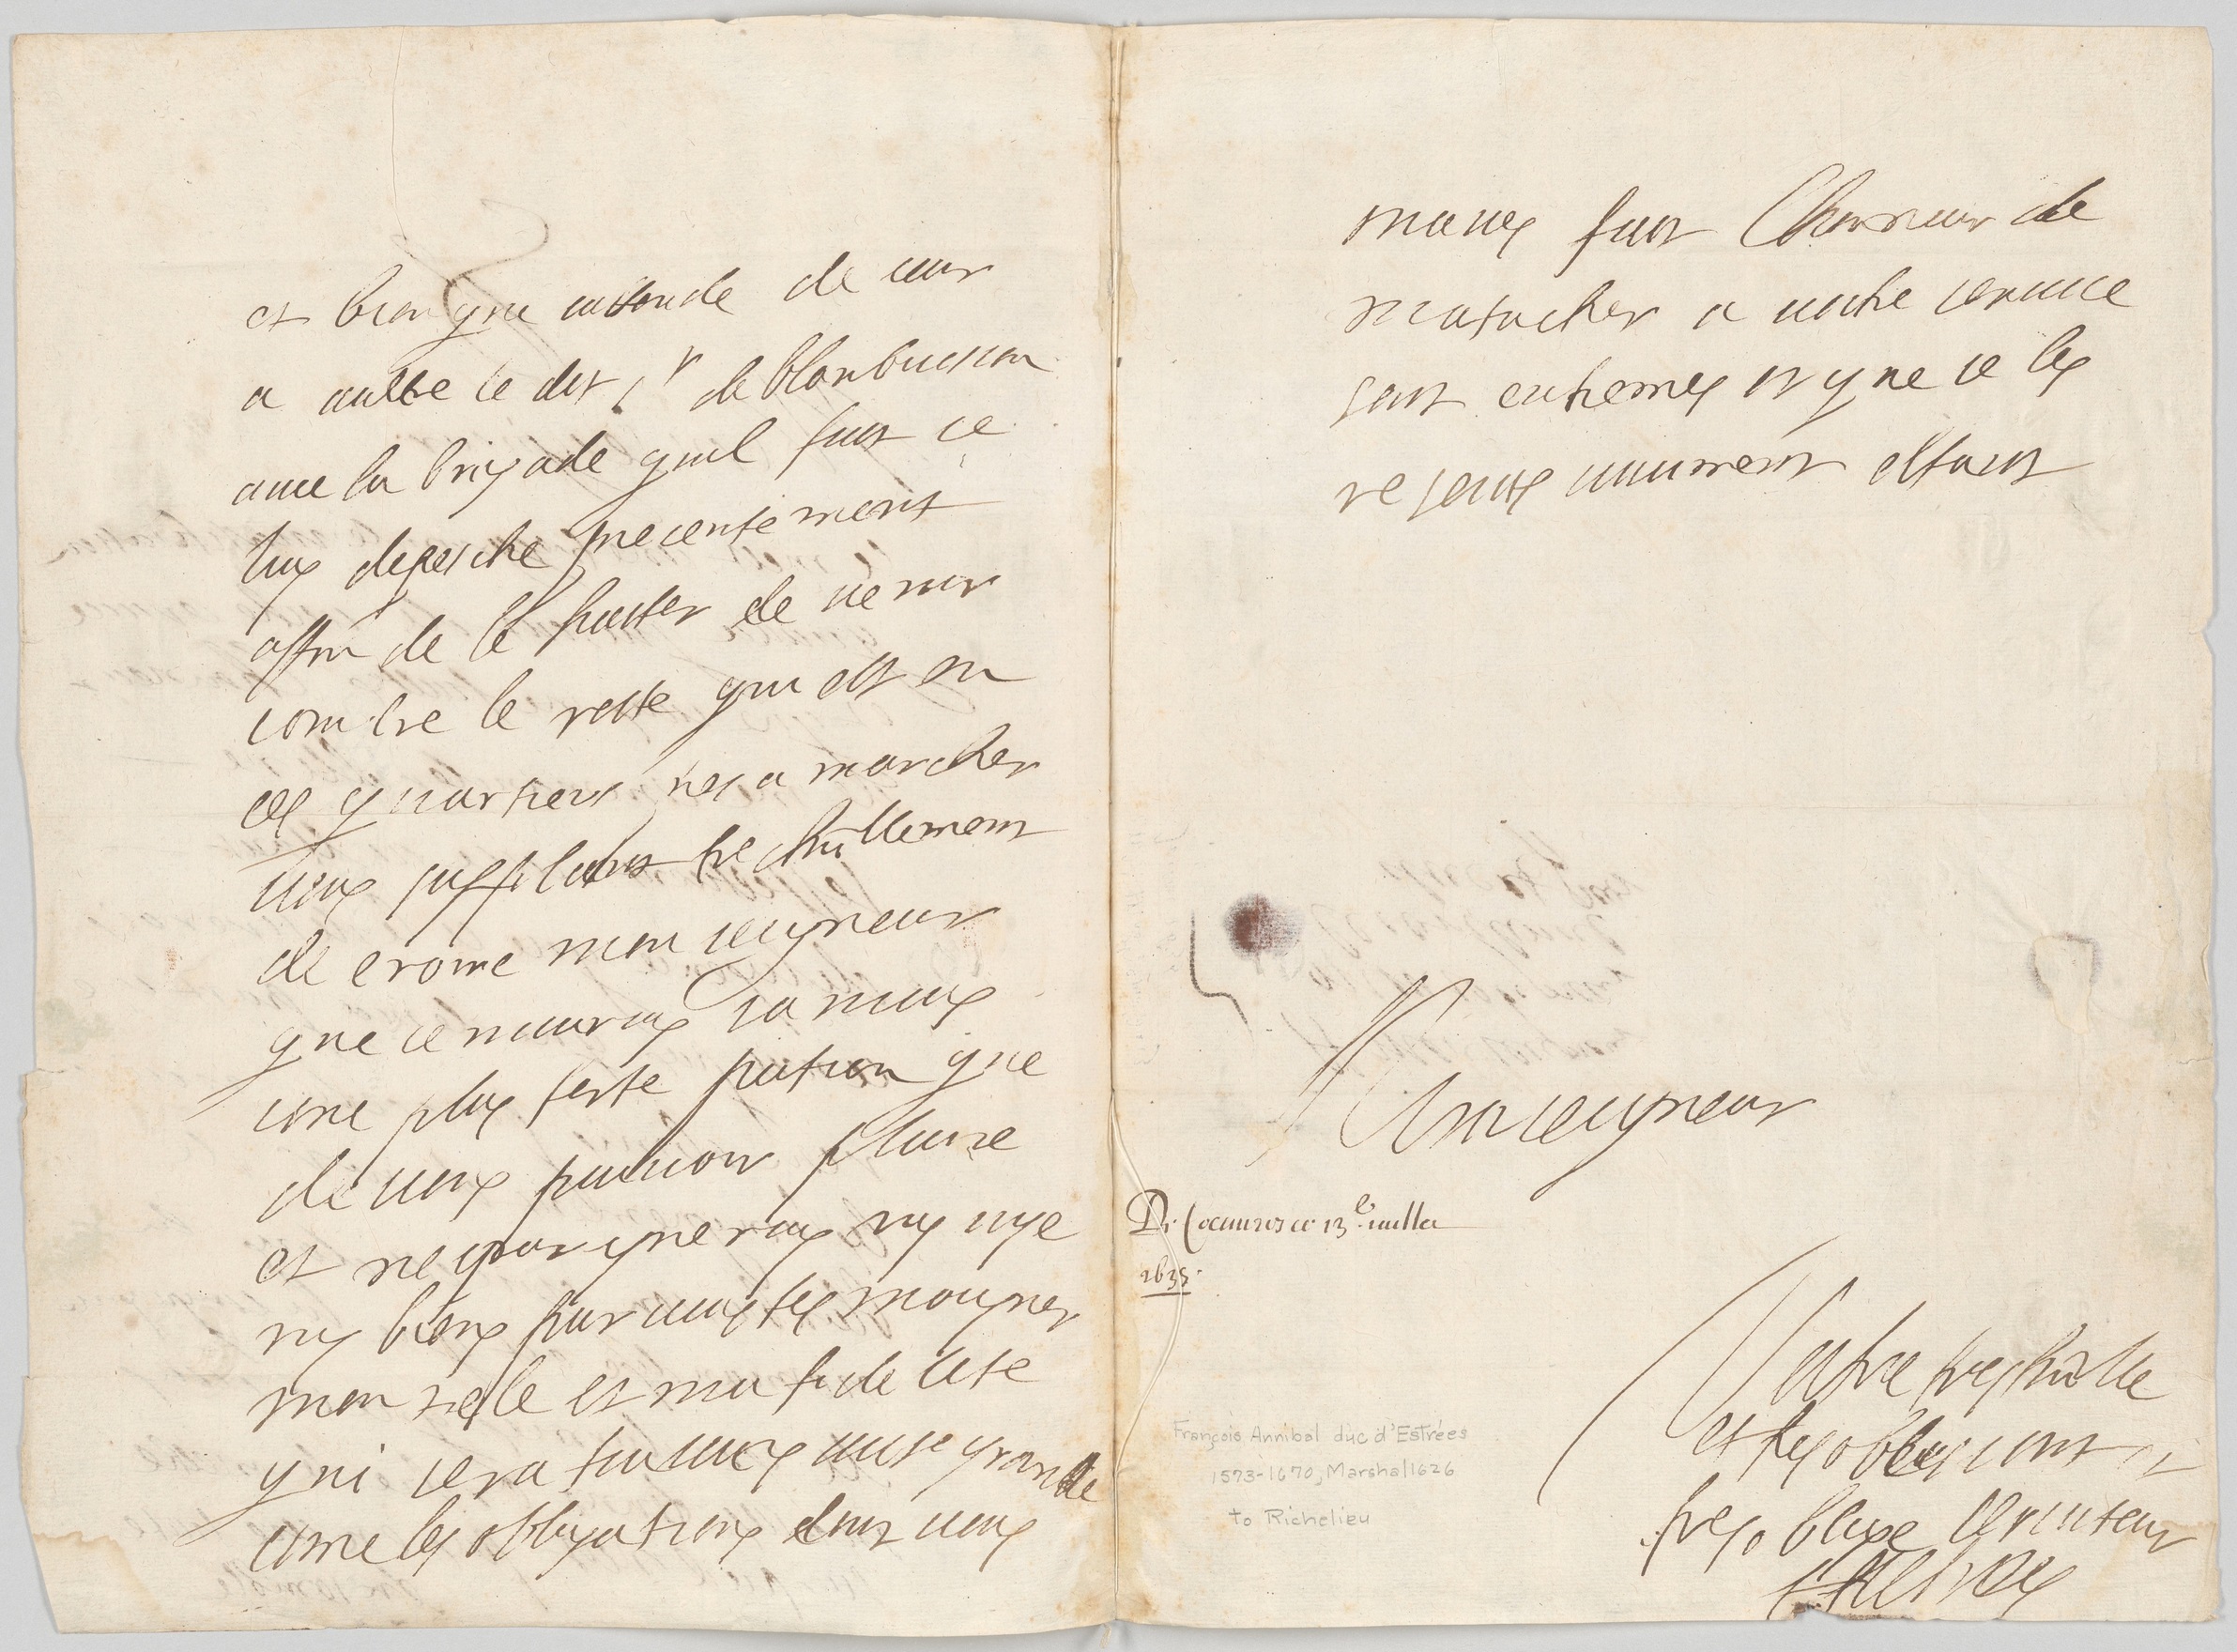 et bien que iattende de iour
a aultre le dit sr de blanbuisson
auec la brigade quil fait ie
luy depesche presentement
affin de le haster de uenir
ioindre le reste qui est en
ces quartiers prest a marcher
uous suppliant tres hublement
de croire monseigneur
que ie nauray iamais
une plus forte pation que
de uous pouuoir plaire
et nespargneray ny uye
ny biens pour uous tesmoygner
mon zele et ma fidelite
qui sera tousiours aussy grande
come les obligations dont uous
maues fait lhonneur de
matacher a uostre seruice
sont extremes et que ie les
resens uiuement estant
Monseigneur
De ce 13e iuillet
1635.
Vostre tres huble
et tres obeissant et
tres oblige seruiteur
Estrees
François Annibal duc d'Estrées
1573-1670, Marshal 1626
to Richelieu